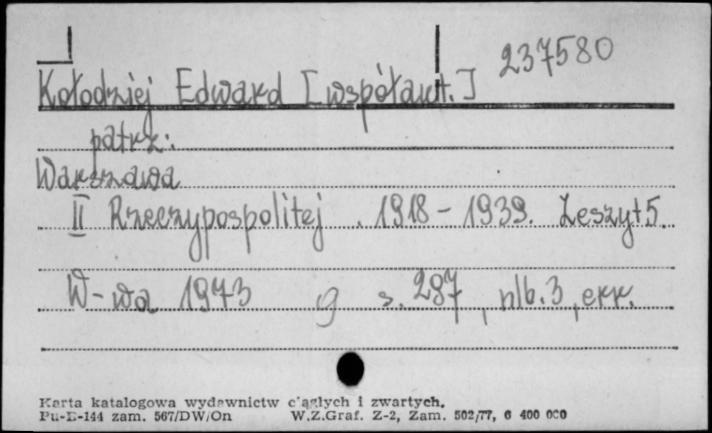 237580
Kołodziej Edward [współaut.]
patrz:
Warszawa
II Rzeczypospolitej . 1918 - 1939. Zeszyt 5.
W-wa 1973 g s. 287, nlb. 3, err.
Karta katalogowa wydawnictw ciągłych i zwartych.
Pu-E-144 zam. 567/DW/On W.Z.Graf. Z-2, Zam. 502/77, 6 400 000